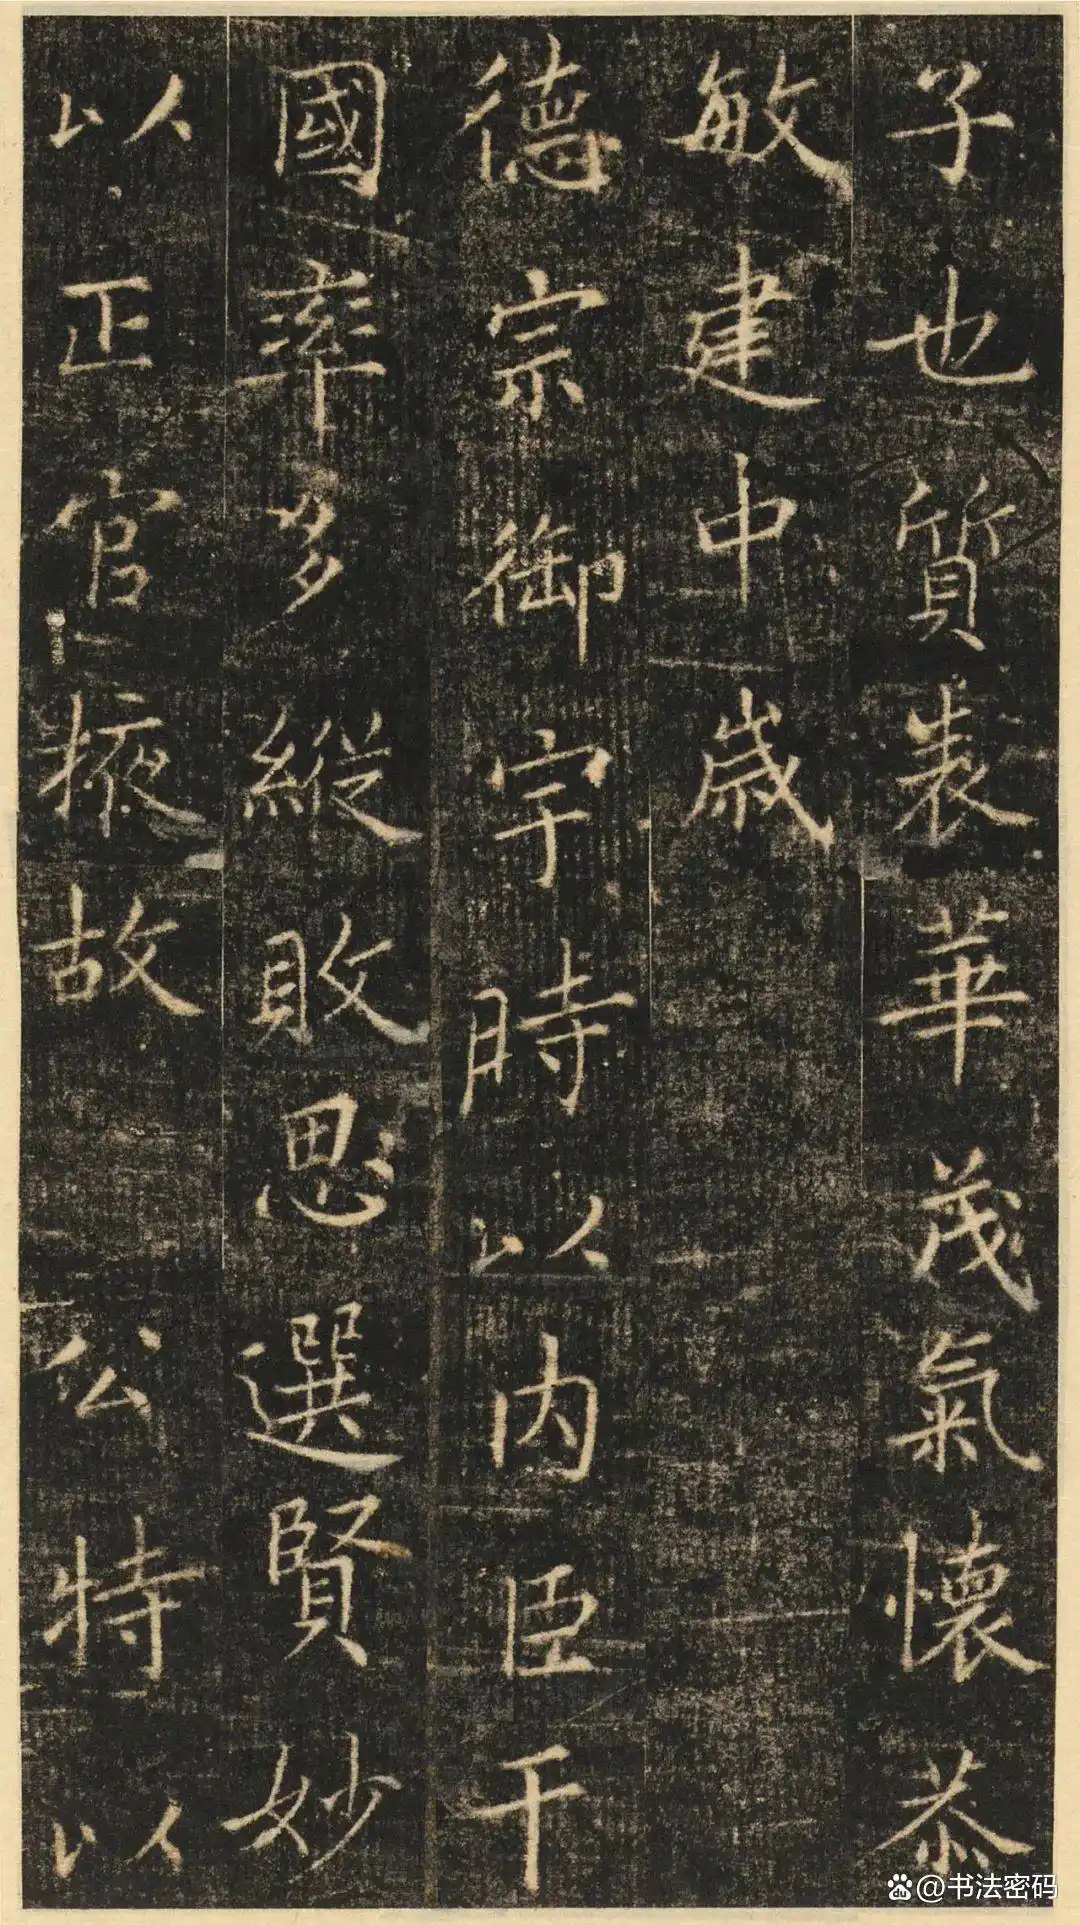 子也質裁華茂氣懷恭
敏建中歲
德宗御宇時以內臣干
國率多縱敗思選賢妙
以正官掖故公特以
@书法密码